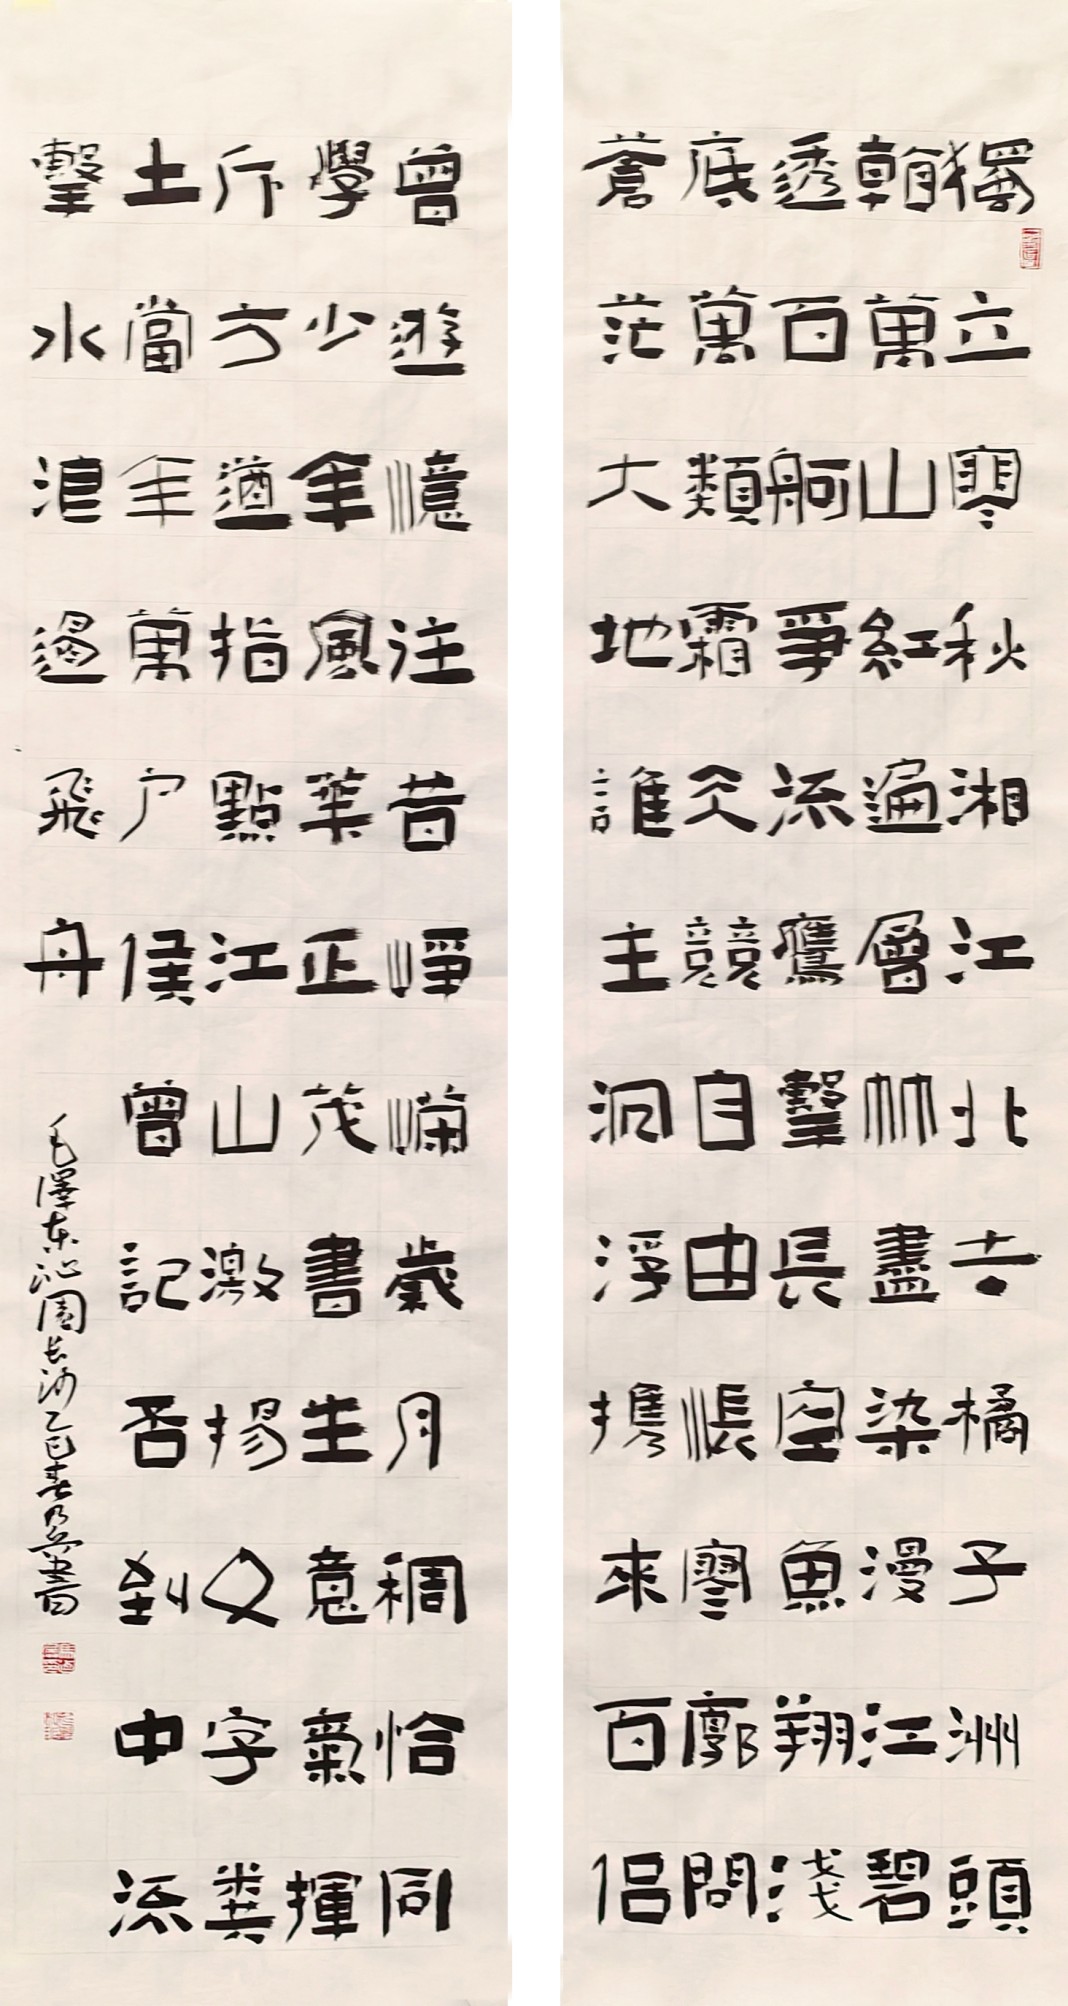 獨立寒秋湘江北去橘子洲頭
看萬山紅遍層林盡染漫江碧
透百舸爭流鷹擊長空魚翔淺
底萬類霜天競自由悵寥廓問
蒼茫大地誰主沉浮攜來百侶
曾遊憶往昔崢嶸歲月稠恰同
學少年風華正茂書生意氣揮
斥方遒指點江山激揚文字糞
土當年萬戶侯曾記否到中流
擊水浪遏飛舟
毛澤东沁園长沙乙巳春書